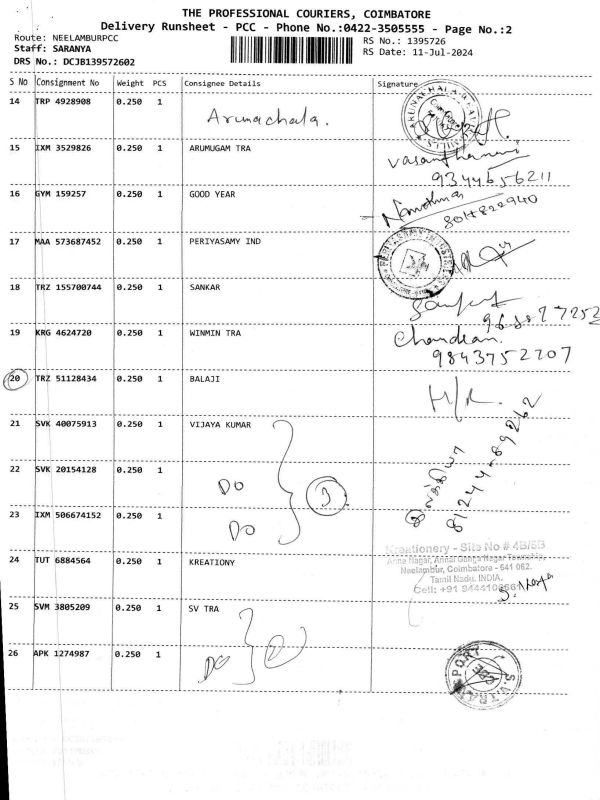 THE PROFESSIONAL COURIERS, COIMBATORE
Delivery Runsheet - PCC - Phone No.:0422-3505555 - Page No.:2
Route: NEELAMBURPCC
RS No.: 1395726
Staff: SARANYA
RS Date: 11-Jul-2024
DRS No.: DCJB139572602
S No Consignment No Weight PCS Consignee Details Signature
14 TRP 4928908 0.250 1 Arunachala.
15 IXM 3529826 0.250 1 ARUMUGAM TRA
9344656211
16 GYM 159257 0.250 1 GOOD YEAR
17 MAA 573687452 0.250 1 PERIYASAMY IND
18 TRZ 155700744 0.250 1 SANKAR
19 KRG 4624720 0.250 1 WINMIN TRA
Chandran.
9843752207
20 TRZ 51128434 0.250 1 BALAJI
H/R.
21 SVK 40075913 0.250 1 VIJAYA KUMAR
81244-89262
22 SVK 20154128 0.250 1 DO
3
23 IXM 506674152 0.250 1 DO
Kreationery - Site No # 4B/5B
24 TUT 6884564 0.250 1 KREATIONY
Neelambur, Coimbatore - 641 062.
Tamil Nadu, INDIA.
25 SVM 3805209 0.250 1 SV TRA
26 APK 1274987 0.250 1 DO
2
S.V.TRANSPORT